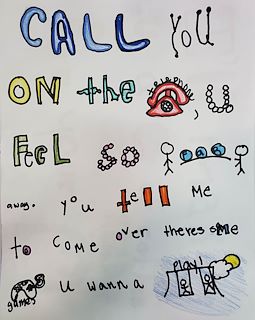 CALL you
ON the telephone, U
FEEL so
away. you tell me
to come over theres some
games u wanna play!